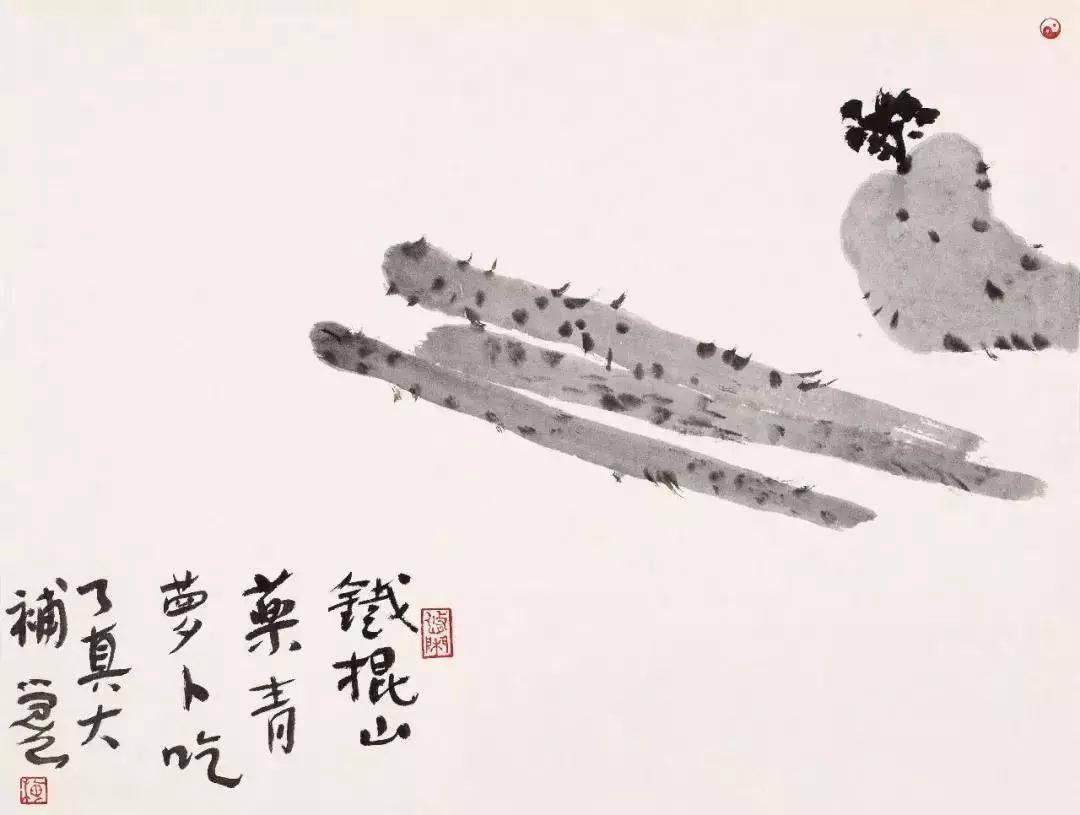 鐵棍山
藥青
萝卜吃
了真大
補